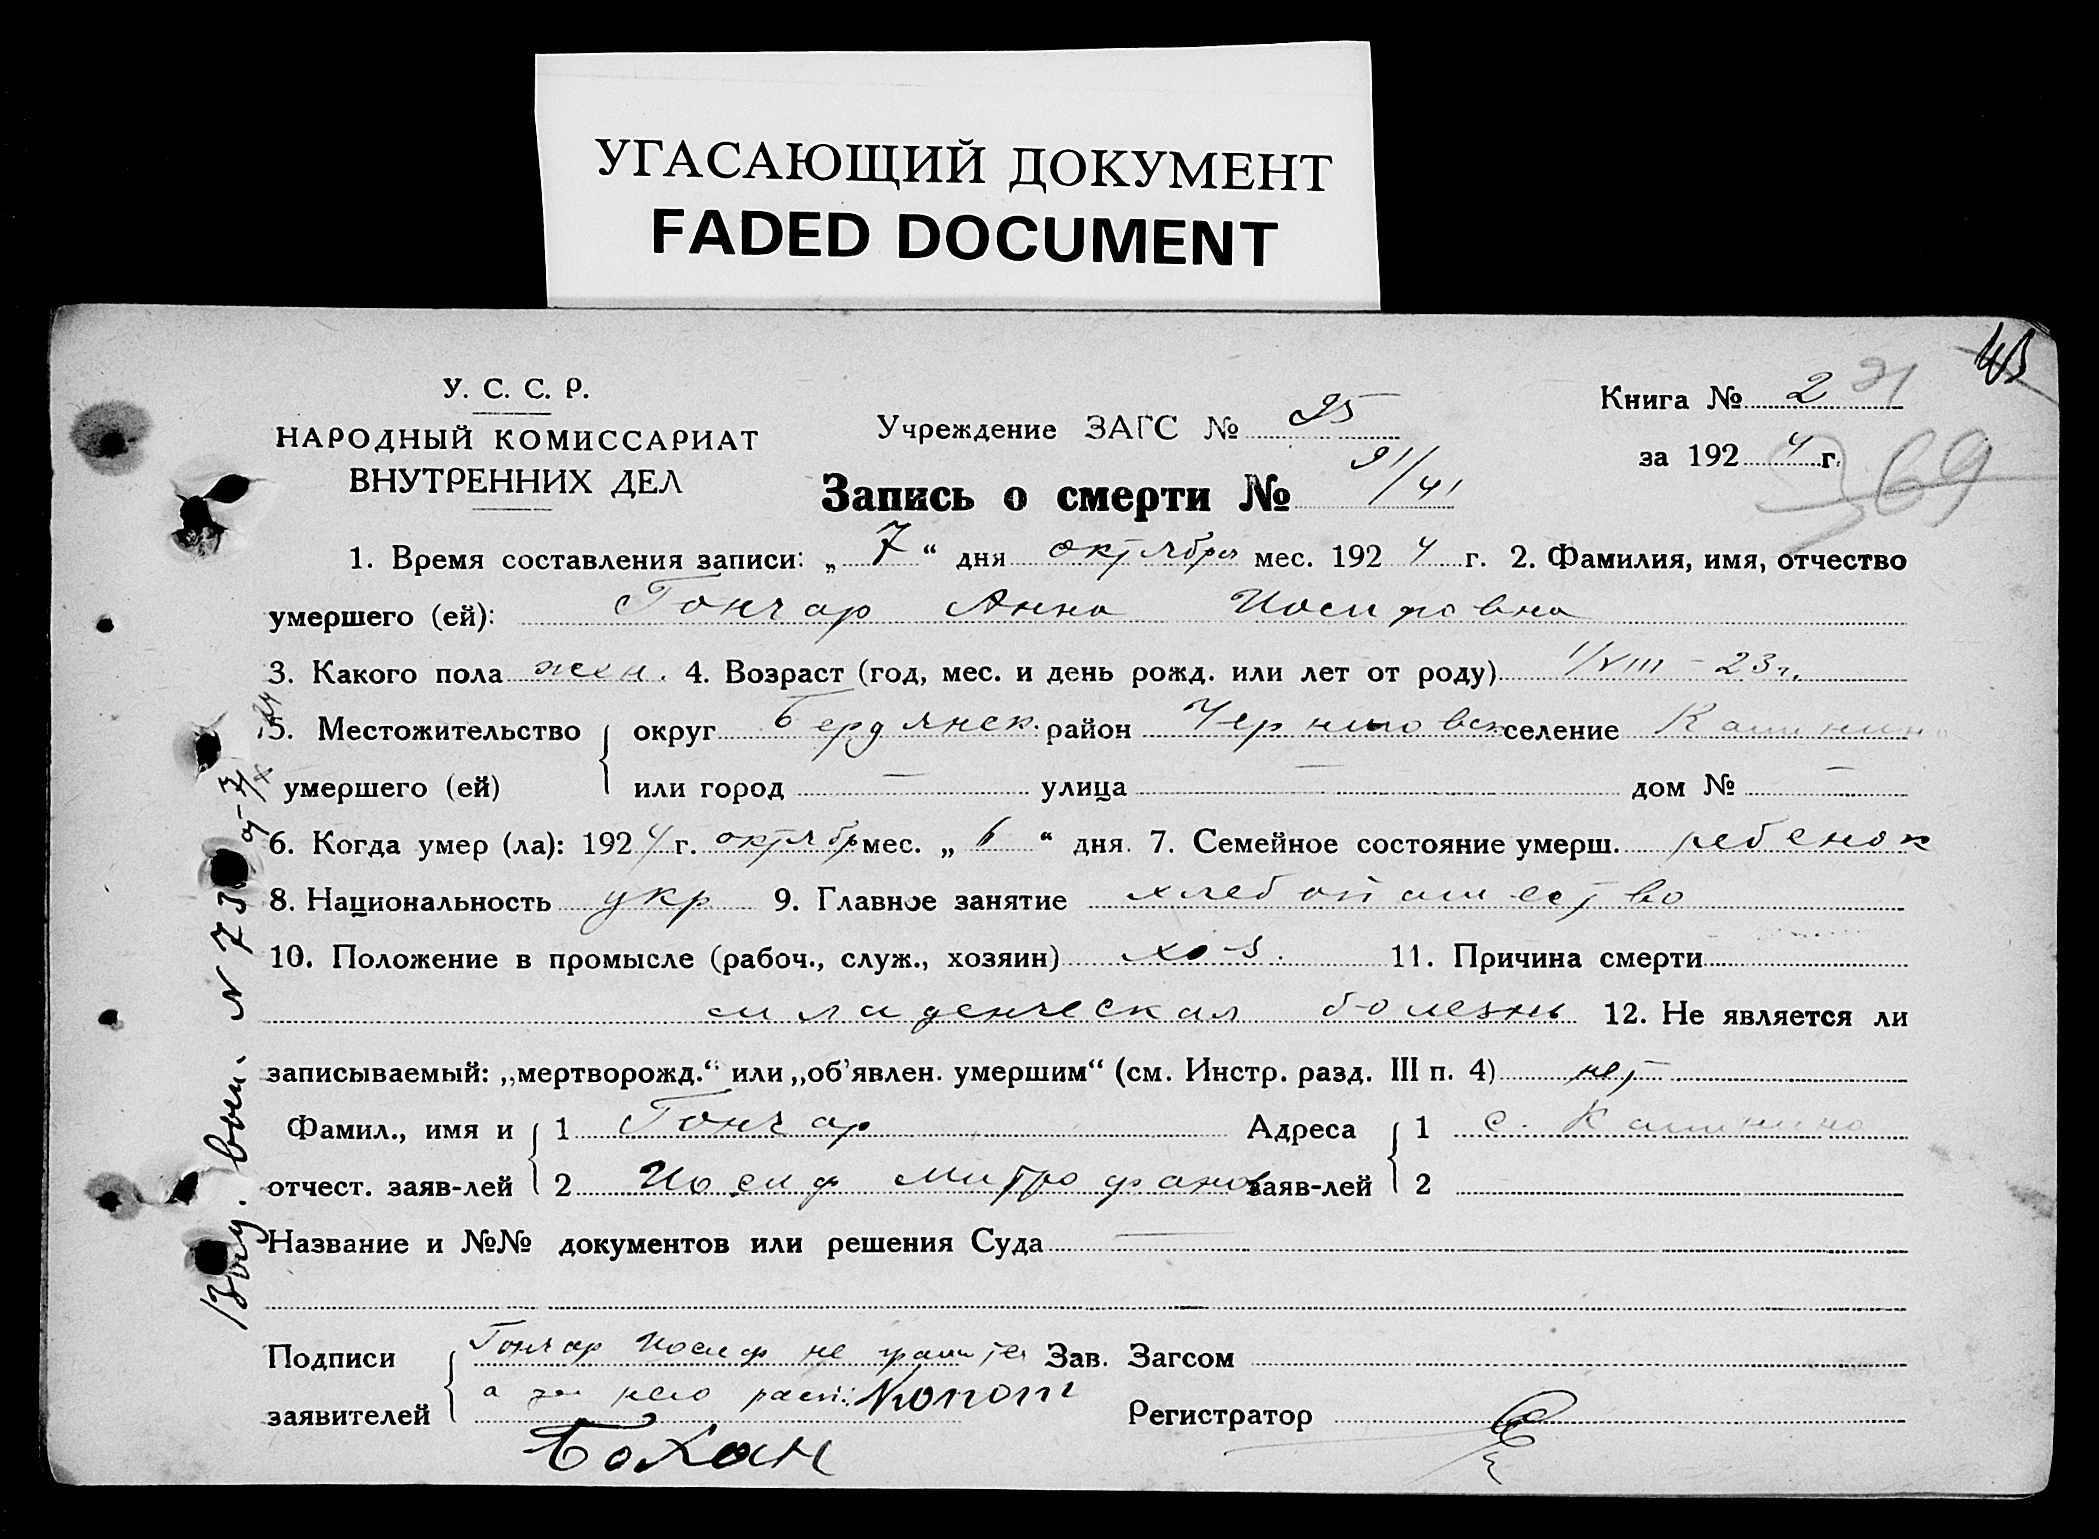 УГАСАЮЩИЙ ДОКУМЕНТ
FADED DOCUMENT
У. С. С. Р.
НАРОДНЫЙ КОМИССАРИАТ
ВНУТРЕННИХ ДЕЛ
Учреждение ЗАГС № 25
Книга № 2
за 1924 г.
69
Запись о смерти № 91/41
1. Время составления записи: „7“ дня октября мес. 1924 г. 2. Фамилия, имя, отчество
умершего (ей): Гончар Анна Иосифовна
3. Какого пола жен. 4. Возраст (год, мес. и день рожд. или лет от роду) 1/VIII – 23 г.
5. Местожительство округ Бердянск. район Черниговск селение
умершего (ей) или город — улица — дом № —
6. Когда умер (ла): 1924 г. октябр мес. „6“ дня. 7. Семейное состояние умерш. ребенок
8. Национальность укр 9. Главное занятие хлебопашество
10. Положение в промысле (рабоч., служ., хозяин) хо-з. 11. Причина смерти
младенческая болезнь 12. Не является ли
записываемый: „мертворожд.“ или „об'явлен. умершим“ (см. Инстр. разд. III п. 4) нет
Фамил., имя и 1 Гончар Адреса 1 с.
отчест. заяв-лей 2 Иосиф Митрофанов заяв-лей 2
Название и №№ документов или решения Суда —
Подписи Гончар Иосиф не грамотен Зав. Загсом
а за него расп. Конот
заявителей Регистратор
Бохан